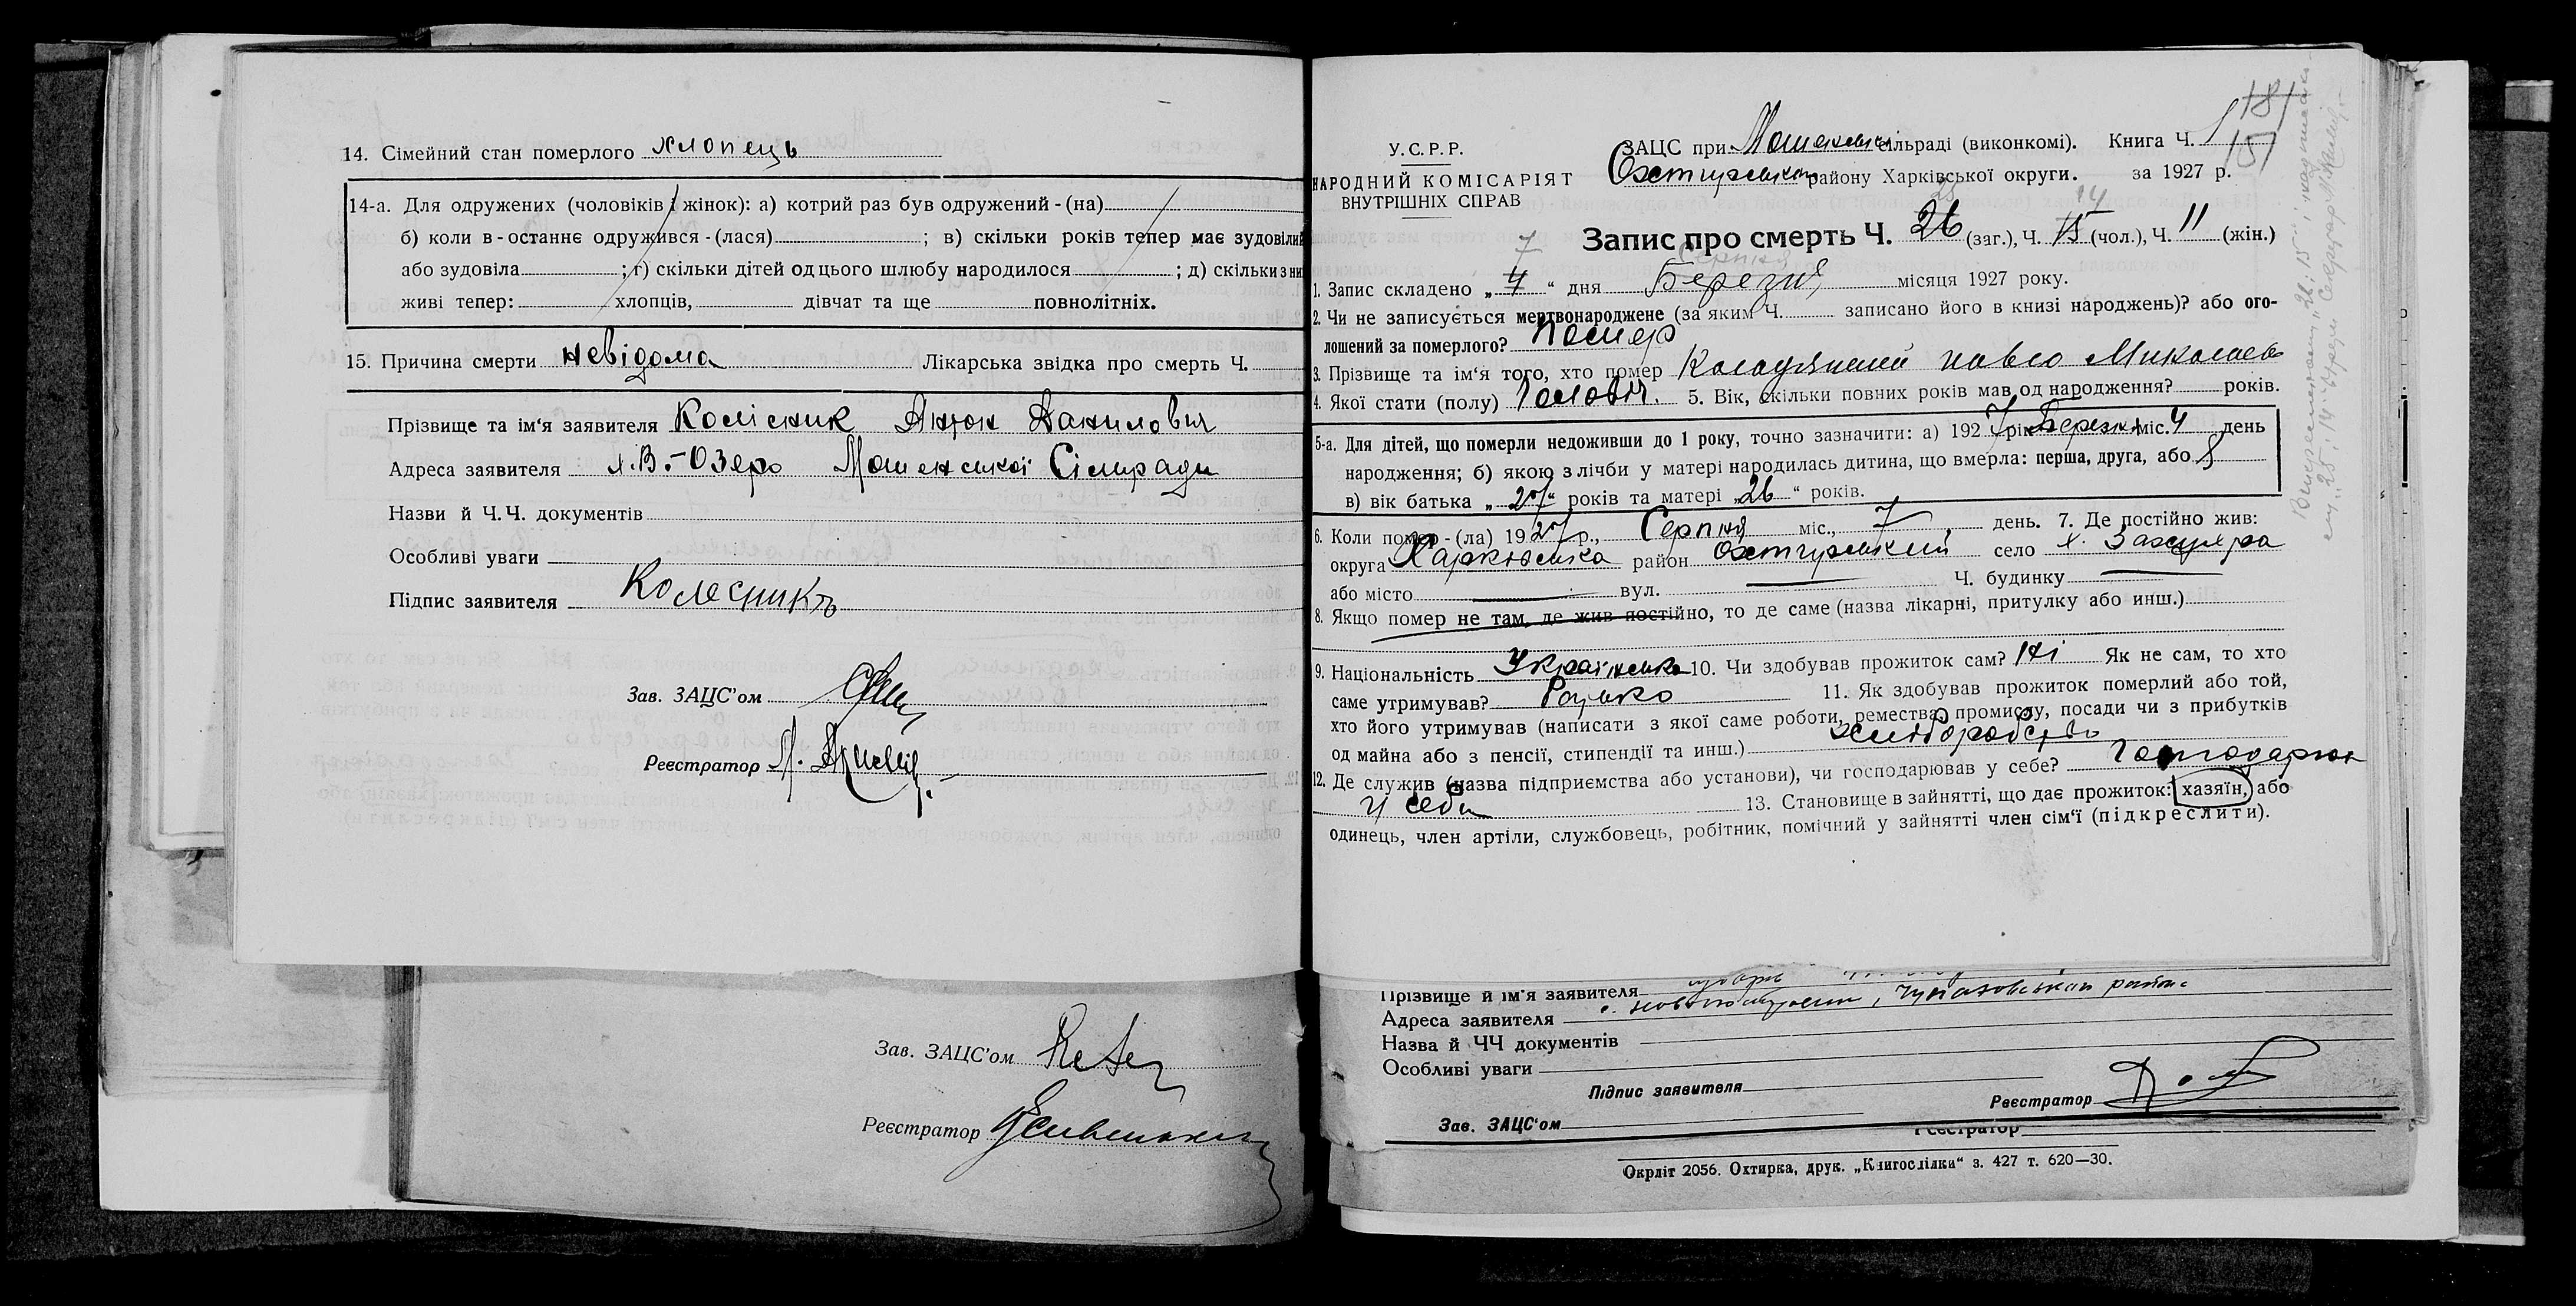 14. Сімейний стан померлого хлопець
14-а. Для одружених (чоловіків і жінок): а) котрий раз був одружений - (на)
б) коли в-останнє одружився - (лася) ; в) скільки років тепер має зудовілий
або зудовіла ; г) скільки дітей од цього шлюбу народилося ; д) скільки з них
живі тепер: хлопців, дівчат та ще повнолітніх.
15. Причина смерти невідома Лікарська звідка про смерть Ч.
Прізвище та ім'я заявителя Колісник Антон Данилович
Адреса заявителя х. В.-Озеро Мошенської Сільради
Назви й Ч.Ч. документів
Особливі уваги
Підпис заявителя Колесникъ
Зав. ЗАЦС'ом
Реєстратор
Зав. ЗАЦС'ом
Реєстратор
У.С.Р.Р.
НАРОДНИЙ КОМІСАРІЯТ
ВНУТРІШНІХ СПРАВ
181
151
ЗАЦС при сільраді (виконкомі). Книга Ч. 1
Охтирського району Харківської округи. за 1927 р.
25 14
Запис про смерть Ч. 26 (заг.), Ч. 15 (чол.), Ч. 11 (жін.)
7 Серпня
1. Запис складено „ 4 “ дня Березня місяця 1927 року.
2. Чи не записується мертвонароджене (за яким Ч. записано його в книзі народжень)? або ого-
лошений за померлого? помер
3. Прізвище та ім'я того, хто помер павло
4. Якої стати (полу) Чолович. 5. Вік, скільки повних років мав од народження? років.
5-а. Для дітей, що померли недоживши до 1 року, точно зазначити: а) 1927 рік Березня міс. 4 день
народження; б) якою з лічби у матері народилась дитина, що вмерла: перша, друга, або
в) вік батька „ 27 “ років та матері „ 26 “ років.
6. Коли помер - (ла) 1927 р., Серпня міс., 7 день. 7. Де постійно жив:
округа Харківська район Охтирський село х.
або місто вул. Ч. будинку
8. Якщо помер не там, де жив постійно, то де саме (назва лікарні, притулку або инш.)
9. Національність Українська 10. Чи здобував прожиток сам? Ні Як не сам, то хто
саме утримував? Батько 11. Як здобував прожиток померлий або той,
хто його утримував (написати з якої саме роботи, ремества, промислу, посади чи з прибутків
од майна або з пенсії, стипендії та инш.) хліборобство
12. Де служив (назва підприємства або установи), чи господарював у себе?
у себе 13. Становище в зайнятті, що дає прожиток: хазяїн, або
одинець, член артіли, службовець, робітник, помічний у зайнятті член сім'ї (підкреслити).
Прізвище й ім'я заявителя
Адреса заявителя
Назва й ЧЧ документів
Особливі уваги
Підпис заявителя
Реєстратор
Зав. ЗАЦС'ом
Реєстратор
Окрліт 2056. Охтирка, друк. „Книгоспілки“ з. 427 т. 620—30.